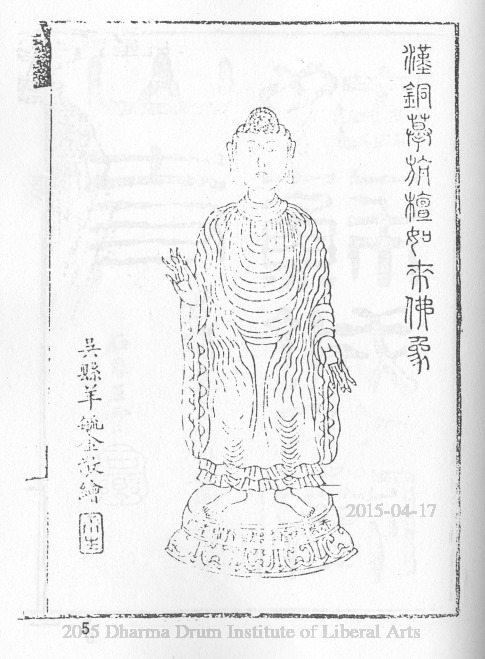 漢銅摹旃檀如來佛象
吳縣羊毓金敬繪
2015-04-17
5
2015 Dharma Drum Institute of Liberal Arts